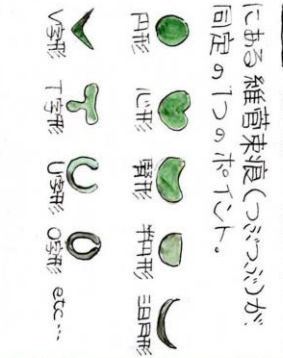 にある維管束痕(つぶつぶ)が
同定の1つのポイント。
円形 心形 腎形 半円形 三日月形
V字形 T字形 U字形 O字形 etc…